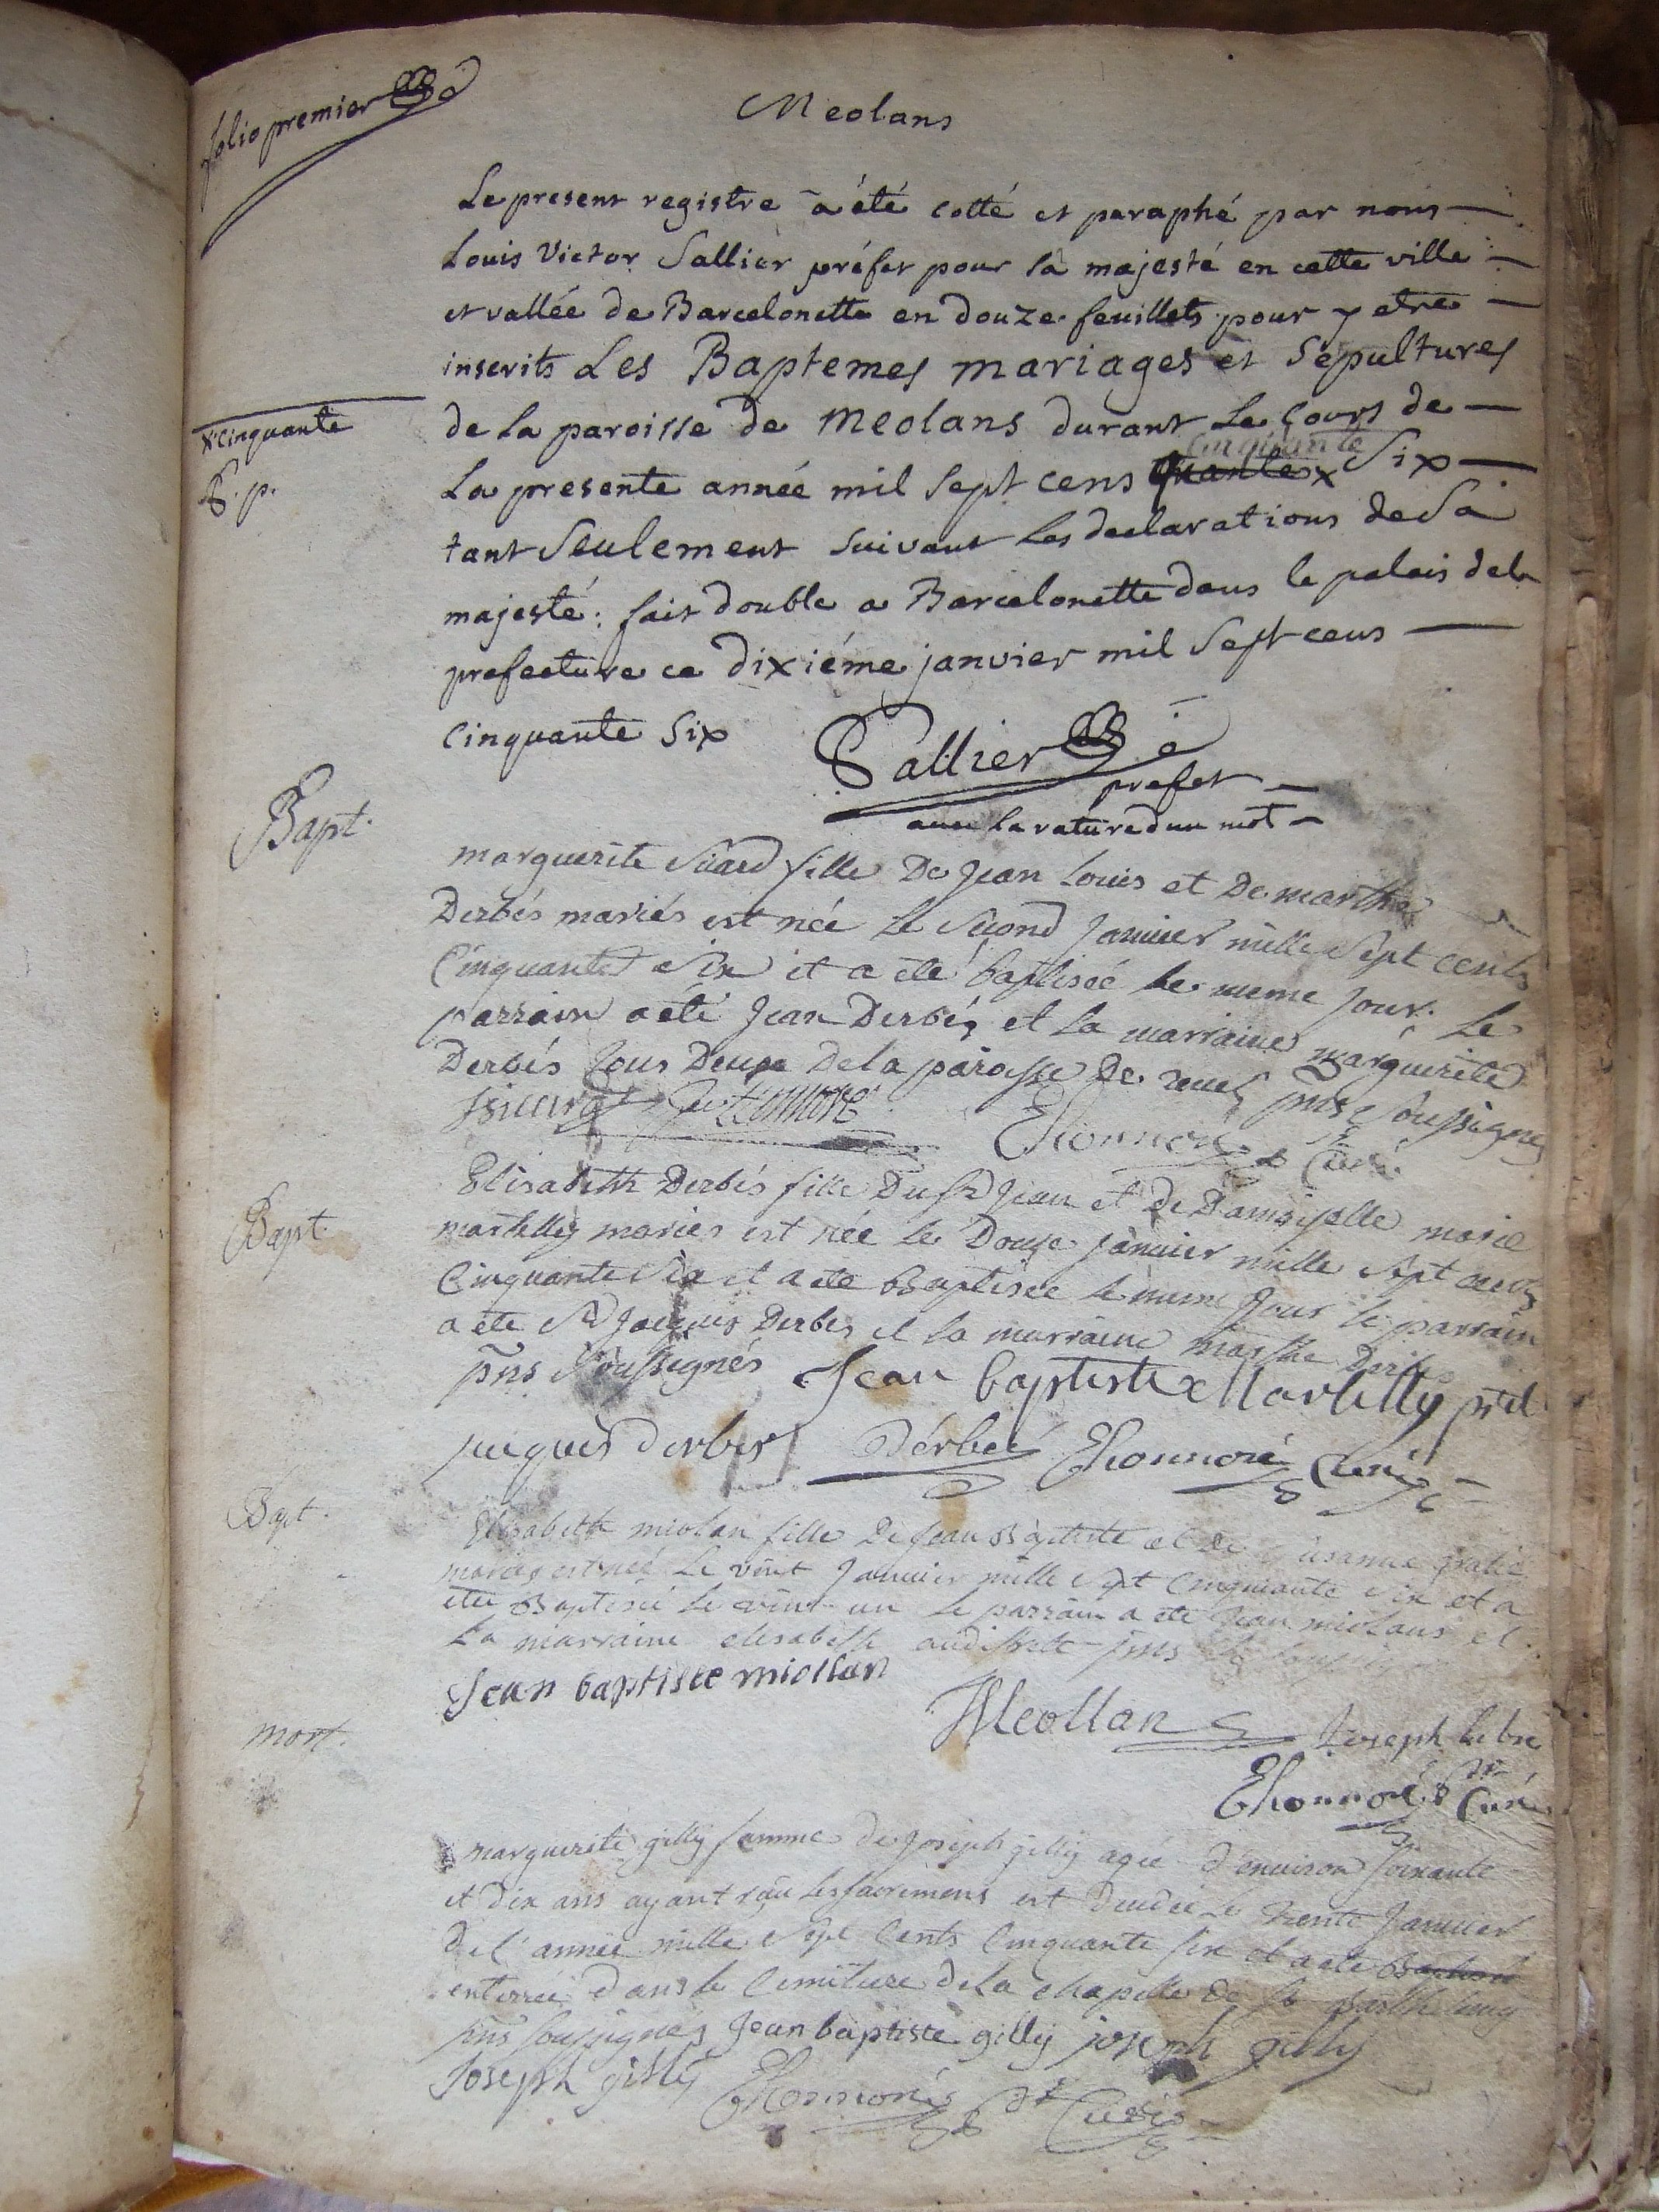 folio premier
Meolans
Le present registre a été cotté et paraphé par nous
Louis Victor Sallier préfet pour sa majesté en cette ville
et vallée de Barcelonette en douze feuillets pour y etre
inscrits Les Baptemes mariages et Sepultures
de la paroisse de Meolans durant Le Cours de
x cinquante
S. p.
cinquante
La presente année mil Sept cens quante x Six
tant Seulement suivant Les declarations de Sa
majesté: fait double a Barcelonette dans le palais dela
prefecture ce dixiéme janvier mil Sept cens
Cinquante Six
Sallier
prefet
avec la rature d'un mot
Bapt.
marguerite Siard fille De Jean Louis et De marthe
Derbés mariés est née Le Second Janvier mille Sept cents
Cinquante Six et a eté baptisée le meme Jour. Le
parrain a été Jean Derbés et la marraine marguerite
Derbés tous Deux De la paroisse De revel pns Soussignes
Ehonnoré Curé
Bapt.
Elisabeth Derbés fille Du Sr Jean et De Damoiselle marie
martelly mariés est née Le Douze janvier mille Sept cents
Cinquante Six et a ete Baptisée le meme Jour le parrain
a ete Sr Jacques Derbes et la marraine marthe Derbes
pns Soussignés Jean baptiste Martelly
jacques derbes Dérbes Ehonnoré Curé
Bapt.
Elisabeth miolan fille De Jean Baptiste et De Susanne
mariés est née Le vint Janvier mille Sept Cinquante Six et a
ete Baptisée le vint un Le parrain a ete Jean miolans et
La marraine elisabeth pns
Jean baptiste miollan
Meollan Joseph
Ehonnoré Curé
mort.
marguerite gilly famme de Joseph gilly agée D'environ Soixante
et Dix ans ayant reçu les sacremens est Decedee Le trente Janvier
De l'année mille Sept Cents Cinquante Six et a ete Baptisée
enterrée Dans le Cimitiere De la chapelle De St Barthelemy
pns soussignés Jean baptiste gilly joseph gilly
Joseph gilly Ehonnoré Curé